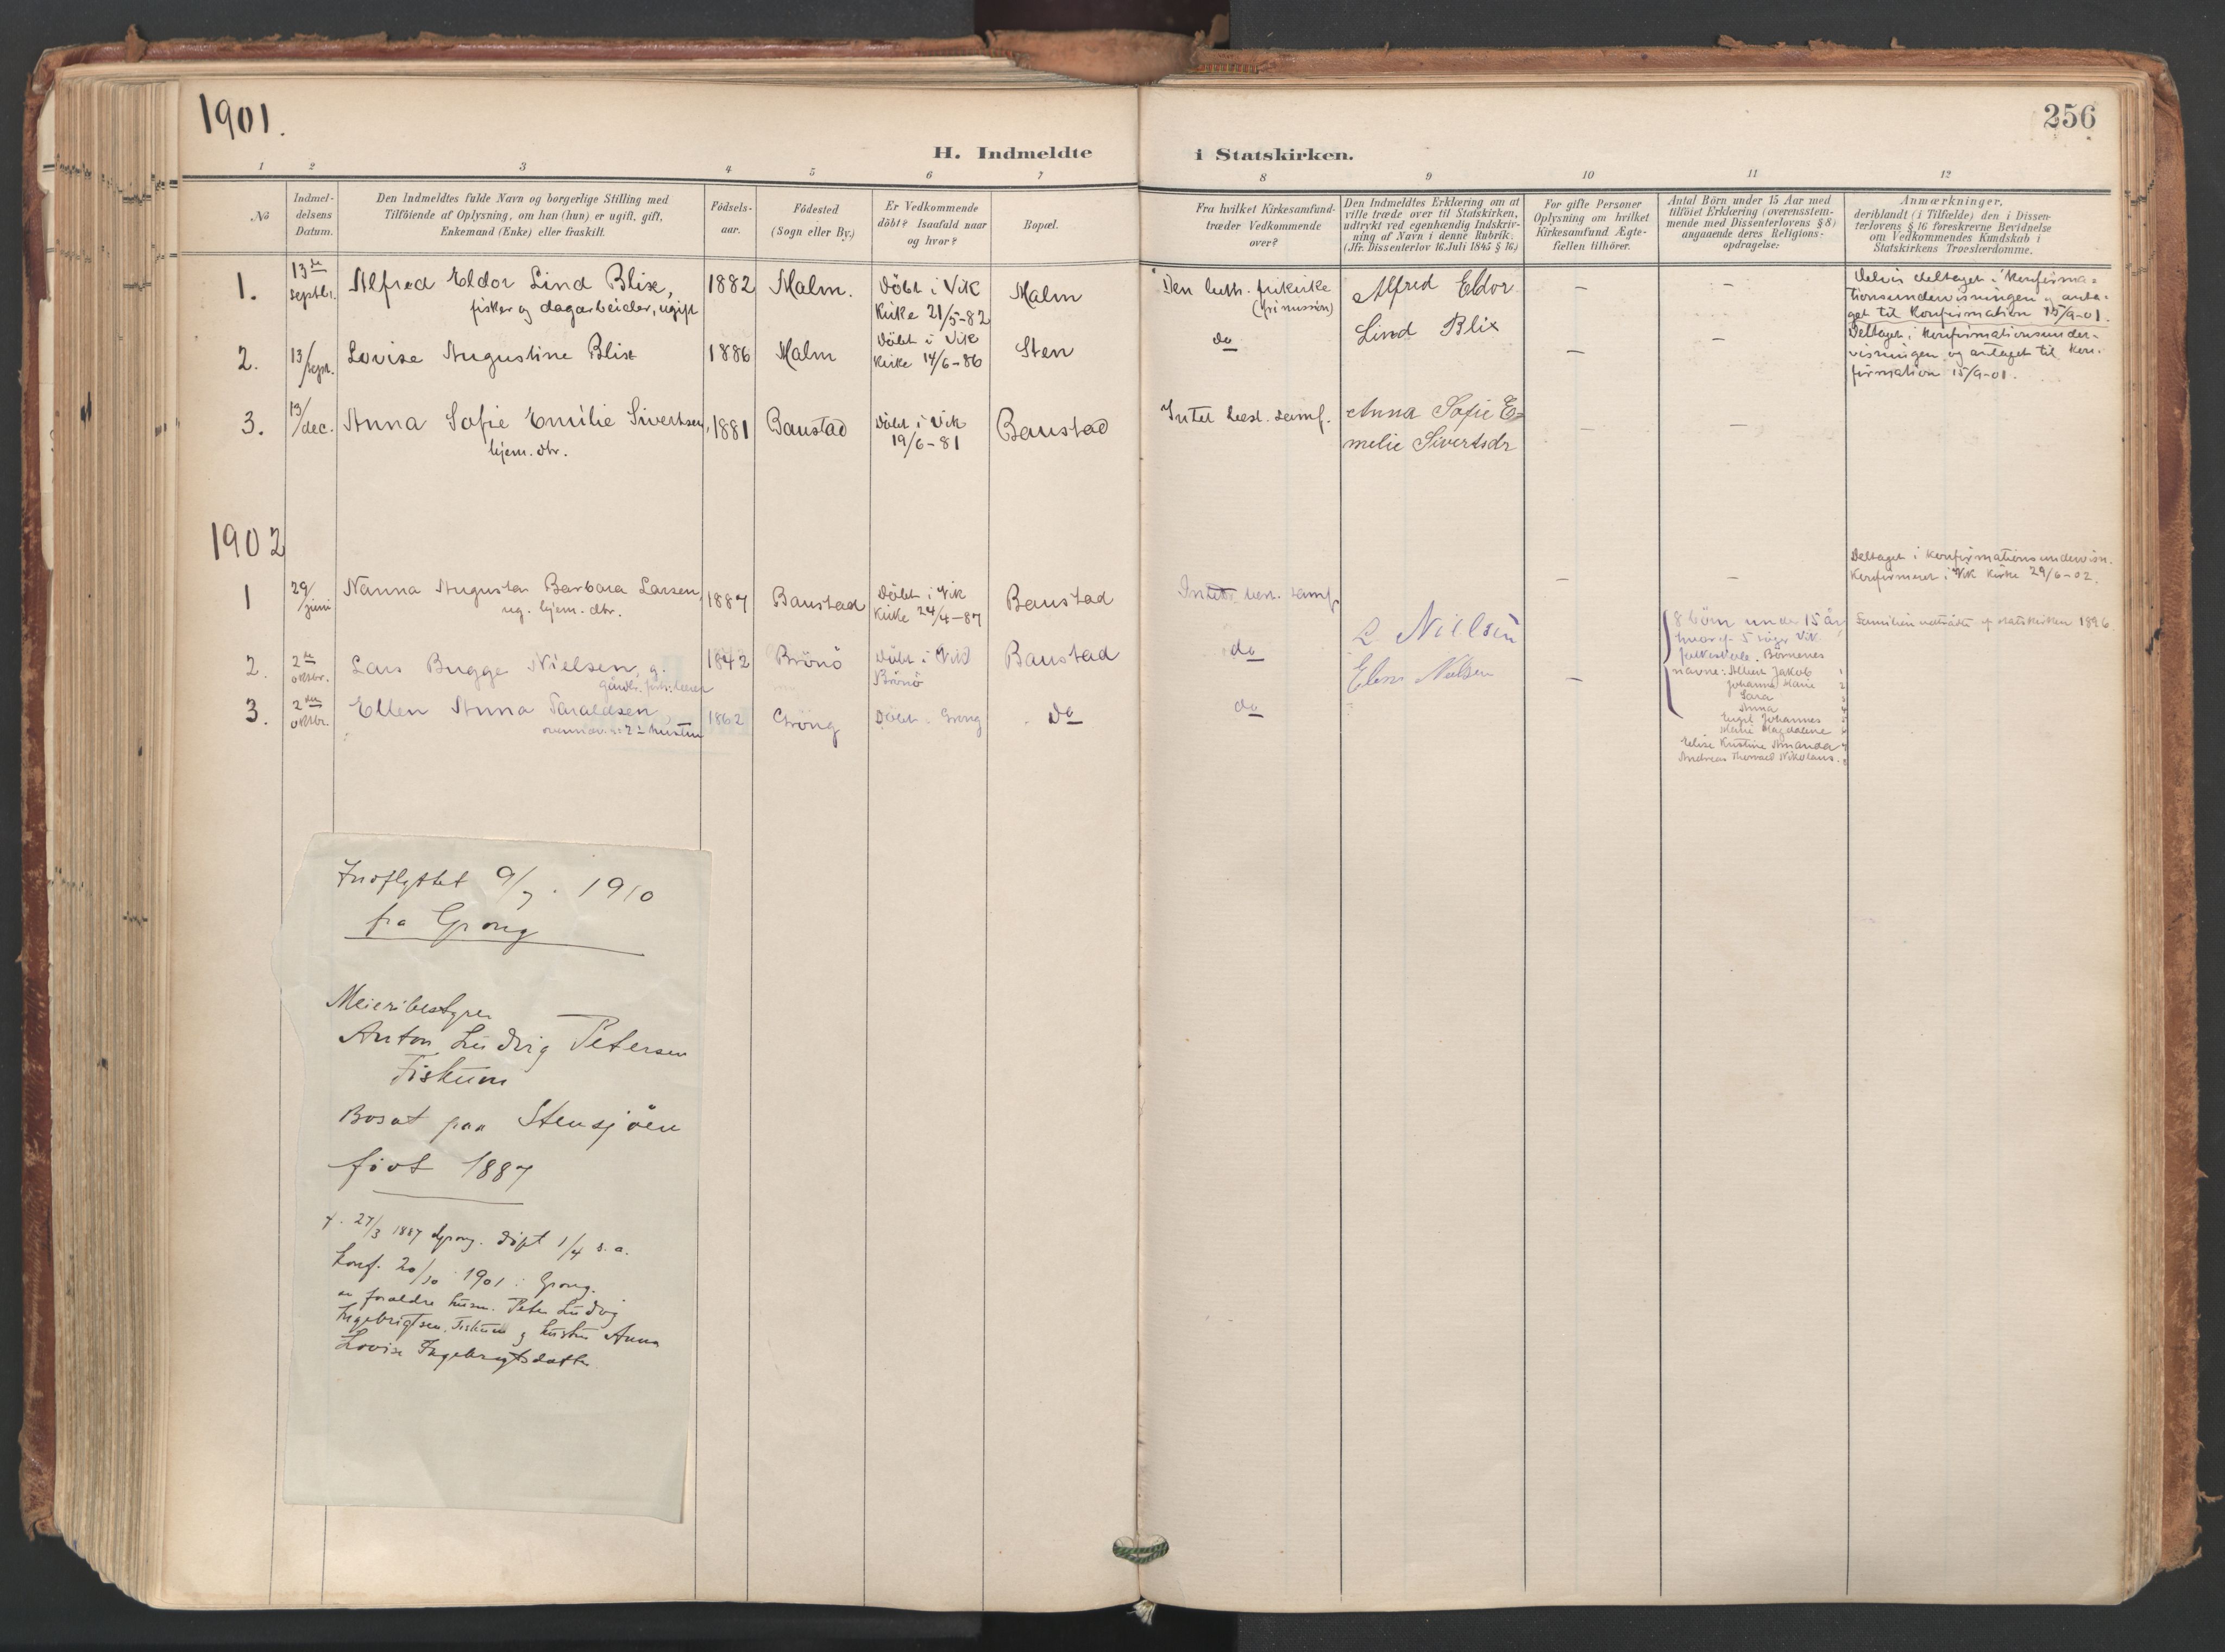 1901.
256
H. Indmeldte
i Statskirken.
1 2 3 4 5 6 7 8 9 10 11 12
No
Indmel-
delsens
Datum.
Den Indmeldtes fulde Navn og borgerlige Stilling med
Tilföiende af Oplysning, om han (hun) er ugift, gift,
Enkemand (Enke) eller fraskilt.
Födsels-
aar.
Födested
(Sogn eller By.)
Er Vedkommende
döbt? Isaafald naar
og hvor?
Bopæl.
Fra hvilket Kirkesamfund
træder Vedkommende
over?
Den Indmeldtes Erklæring om at
ville træde over til Statskirken,
udtrykt ved egenhændig Indskriv-
ning af Navn i denne Rubrik.
(Jfr. Dissenterlov 16. Juli 1845 § 16)
For gifte Personer
Oplysning om hvilket
Kirkesamfund Ægte-
fællen tilhörer.
Antal Börn under 15 Aar med
tilföiet Erklæring (overensstem-
mende med Dissenterlovens § 8)
angaaende deres Religions-
opdragelse:
Anmærkninger,
deriblandt (i Tilfælde) den i Dissen-
terlovens § 16 foreskrevne Bevidnelse
om Vedkommendes Kundskab i
Statskirkens Troeslærdomme.
1.
13de
septbr.
Alfred Eldor Lind Blix,
fisker og dagarbeider, ugift
1882
Malm.
Döbt i Vik
Kirke 21/5-82
Malm
Den luth. frikirke
(frimission)
Alfred Eldor
Lind Blix
–
–
Delvis deltaget i Konfirma-
tionsundervisningen og anta-
get til Konfirmation 15/9-01.
2.
13/sept.
Lovise Augustine Blix
1886
Malm
Döbt i Vik
Kirke 14/6-86
Sten
do
–
–
Deltaget i Konfirmationsunder-
visningen og antaget til Kon-
firmation 15/9-01.
3.
13/dec.
Anna Sofie Emilie Sivertsen,
hjem. dtr.
1881
Baustad
Döbt i Vik
19/6-81
Baustad
Intet best. samf.
Anna Sofie E-
melie Sivertsdr
–
–
1902
1
29/juni
Nanna Augusta Barbara Larsen,
ug. hjem. dtr.
1887
Baustad
Döbt i Vik
Kirke 24/4-87
Baustad
Intet best. samf.
–
–
Deltaget i Konfirmationsundervisn.
Konfirmeret i Vik Kirke 29/6-02.
2.
2de
oktbr.
Lars Bugge Nielsen, g.
1842
Brönö
Döbt i
Brönö
Baustad
do
L Nielsen
8 börn under 15 år,
hvoraf 5 söger Vik
folkeskole. Börnenes
navne: Albert Jakob 1
Johanna Marie 2
Sara 3
Anna 4
Engel Johannes 5
Marie Magdalene 6
Elise Kristine Amanda 7
Andreas Nikolaus. 8
Familien udtrådte af statskirken 1896.
3.
2den
oktbr.
Ellen Anna Taraldsen
1862
Grong
Döbt i Grong
do
do
Elen Nielsen
–
Indflyttet 9/7. 1910
fra Grong
Meieribestyrer
Anton Ludvig Petersen
Fiskum
Bosat paa Stensjöen
född 1887
f. 27/3 1887 Grong. döpt 1/4 s. a.
Konf. 20/10 1901 i Grong.
av foraldre husm. Peter Ludvig
Ingebrigtsen, Fiskum og hustru Anna
Lovise Ingebrigtsdatter